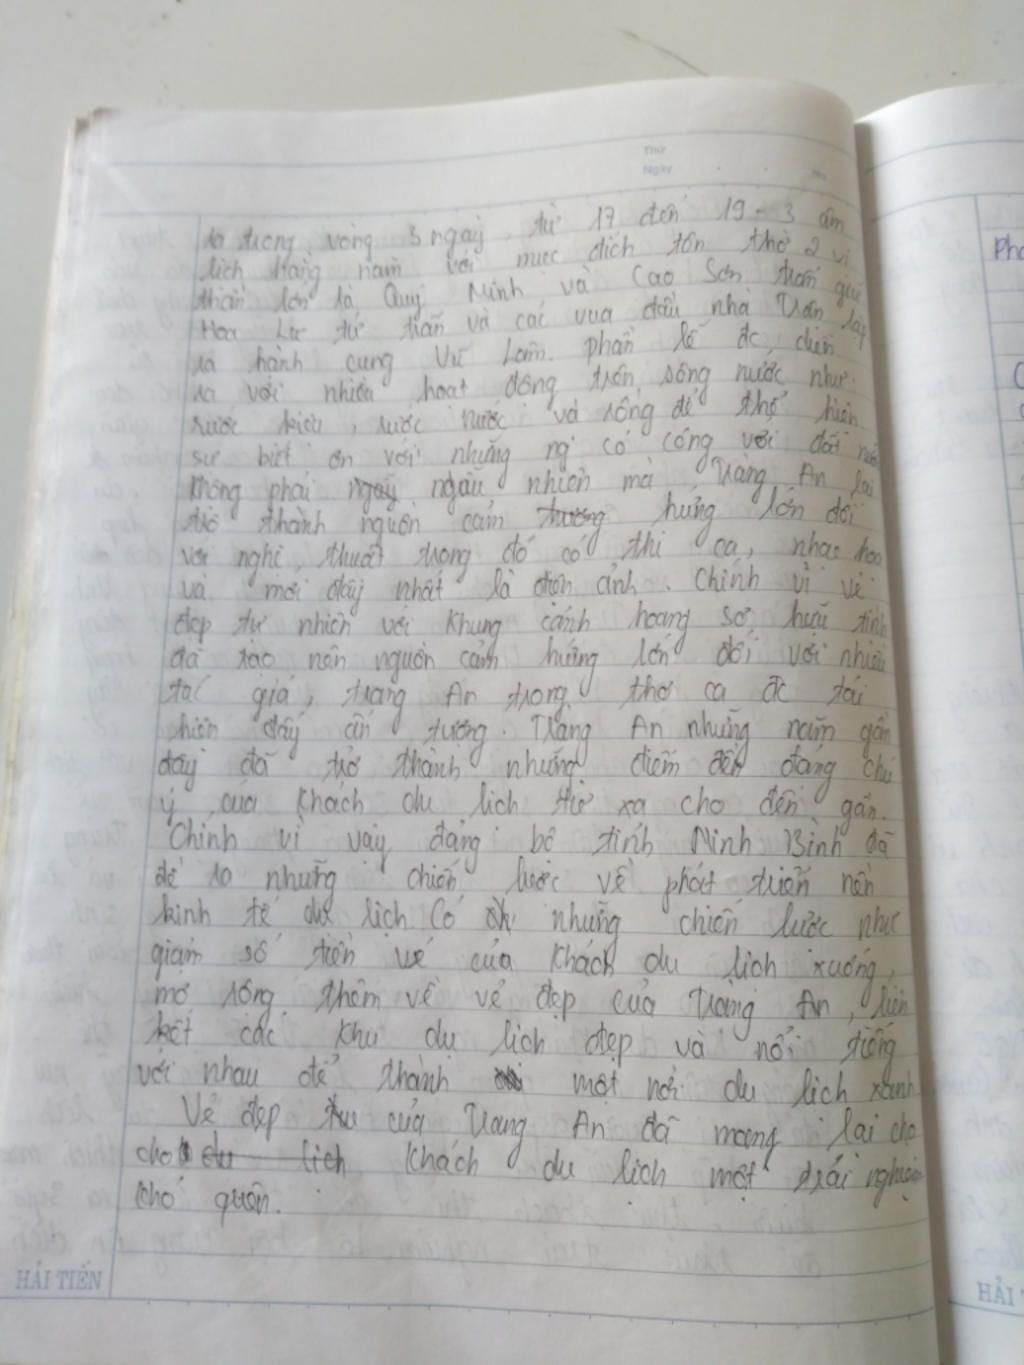 Thứ
Ngày No
ra trong vòng 3 ngày, từ 17 đến 19-3 âm
lịch hàng năm với mục đích tôn thờ 2 vị
thần lớn là Quý Minh và Cao Sơn trấn giữ
Hoa Lư tứ trấn và các vua đầu nhà Trần lập
ra hành cung Vũ Lâm. phần lễ đc diễn
ra với nhiều hoạt động trên sông nước như:
rước kiệu, rước nước và rồng để thể hiện
sự biết ơn với những ng có công với đất nước
Không phải ngẫu nhiên mà Tràng An lại
trở thành nguồn cảm hứng lớn đối
với nghị thuật trong đó có thi ca, nhạc hoạ
và mới đây nhất là điện ảnh. Chính vì vẻ
đẹp tự nhiên với khung cảnh hoang sơ hữu tình
đã tạo nên nguồn cảm hứng lớn đối với nhiều
tác giả, tràng An trong thơ ca đc tái
hiện đầy ấn tượng. Tràng An những năm gần
đây đã trở thành những điểm đến đáng chú
ý của khách du lịch từ xa cho đến gần.
Chính vì vậy đảng bộ tỉnh Ninh Bình đã
đề ra những chiến lược về phát triển nền
kinh tế du lịch. Có những chiến lược như
giảm số tiền vé của khách du lịch xuống,
mở rộng thêm về vẻ đẹp của Tràng An, liên
kết các khu du lịch đẹp và nổi tiếng
với nhau để thành một nơi du lịch xanh
Vẻ đẹp của Trang An đã mang lại cho
cho khách du lịch một trải nghiệm
khó quên.
HẢI TIẾN
HẢI